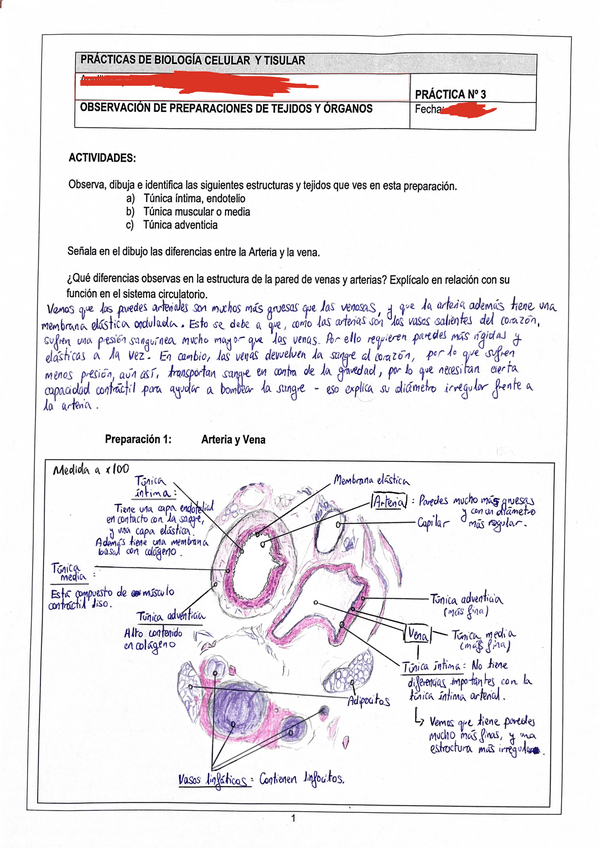 PRÁCTICAS DE BIOLOGÍA CELULAR Y TISULAR
PRÁCTICA Nº 3
OBSERVACIÓN DE PREPARACIONES DE TEJIDOS Y ÓRGANOS
Fecha:
ACTIVIDADES:
Observa, dibuja e identifica las siguientes estructuras y tejidos que ves en esta preparación.
a) Túnica íntima, endotelio
b) Túnica muscular o media
c) Túnica adventicia
Señala en el dibujo las diferencias entre la Arteria y la vena.
¿Qué diferencias observas en la estructura de la pared de venas y arterias? Explícalo en relación con su
función en el sistema circulatorio.
Vemos que las paredes arteriales son muchos más gruesas que las venosas, y que la arteria además tiene una
membrana elástica ondulada. Esto se debe a que, como las arterias son los vasos salientes del corazón,
sufren una presión sanguínea mucho mayor que las venas. Por ello requieren paredes más rígidas y
elásticas a la vez. En cambio, las venas devuelven la sangre al corazón, por lo que sufren
menos presión, aún así, transportan sangre en contra de la gravedad, por lo que necesitan cierta
capacidad contráctil para ayudar a bombear la sangre - eso explica su diámetro irregular frente a
la arteria.
Preparación 1: Arteria y Vena
Medida a x100
Túnica
íntima:
Tiene una capa endotelial
en contacto con la sangre,
y una capa elástica.
Además tiene una membrana
basal con colágeno.
Túnica
media:
Está compuesto de músculo
contráctil liso.
Túnica adventicia
Alto contenido
en colágeno
Membrana elástica
Arteria: Paredes mucho más gruesas
y con un diámetro
más regular.
Capilar
Túnica adventicia
(más fina)
Vena
Túnica media
(más fina)
Túnica íntima: No tiene
diferencias importantes con la
túnica íntima arterial.
↳ Vemos que tiene paredes
mucho más finas, y una
estructura más irregular.
Adipocitos
Vasos linfáticos: Contienen linfocitos.
1